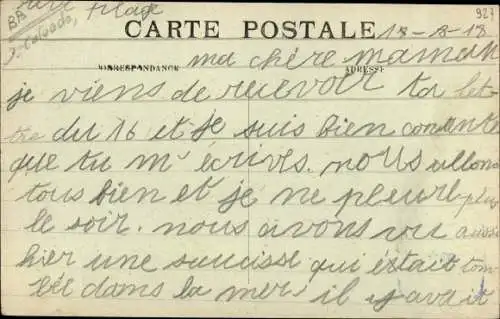 927
BA
Plage
J. Calvados,
CARTE POSTALE
18-8-18
ma chère maman
CORRESPONDANCE
ADRESSE
je viens de recevoir ta let-
tre du 16 et je suis bien contente
que tu m'écrives. nous allons
tous bien et je ne pleure plus
le soir. nous avons vu aussi
hier une saucisse qui était tom
bée dans la mer, il y avait